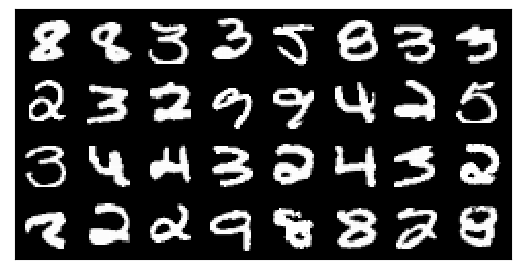 8 8 3 3 5 8 3 3
2 3 2 9 9 4 2 5
3 4 4 3 2 4 3 2
2 2 2 9 8 8 2 8